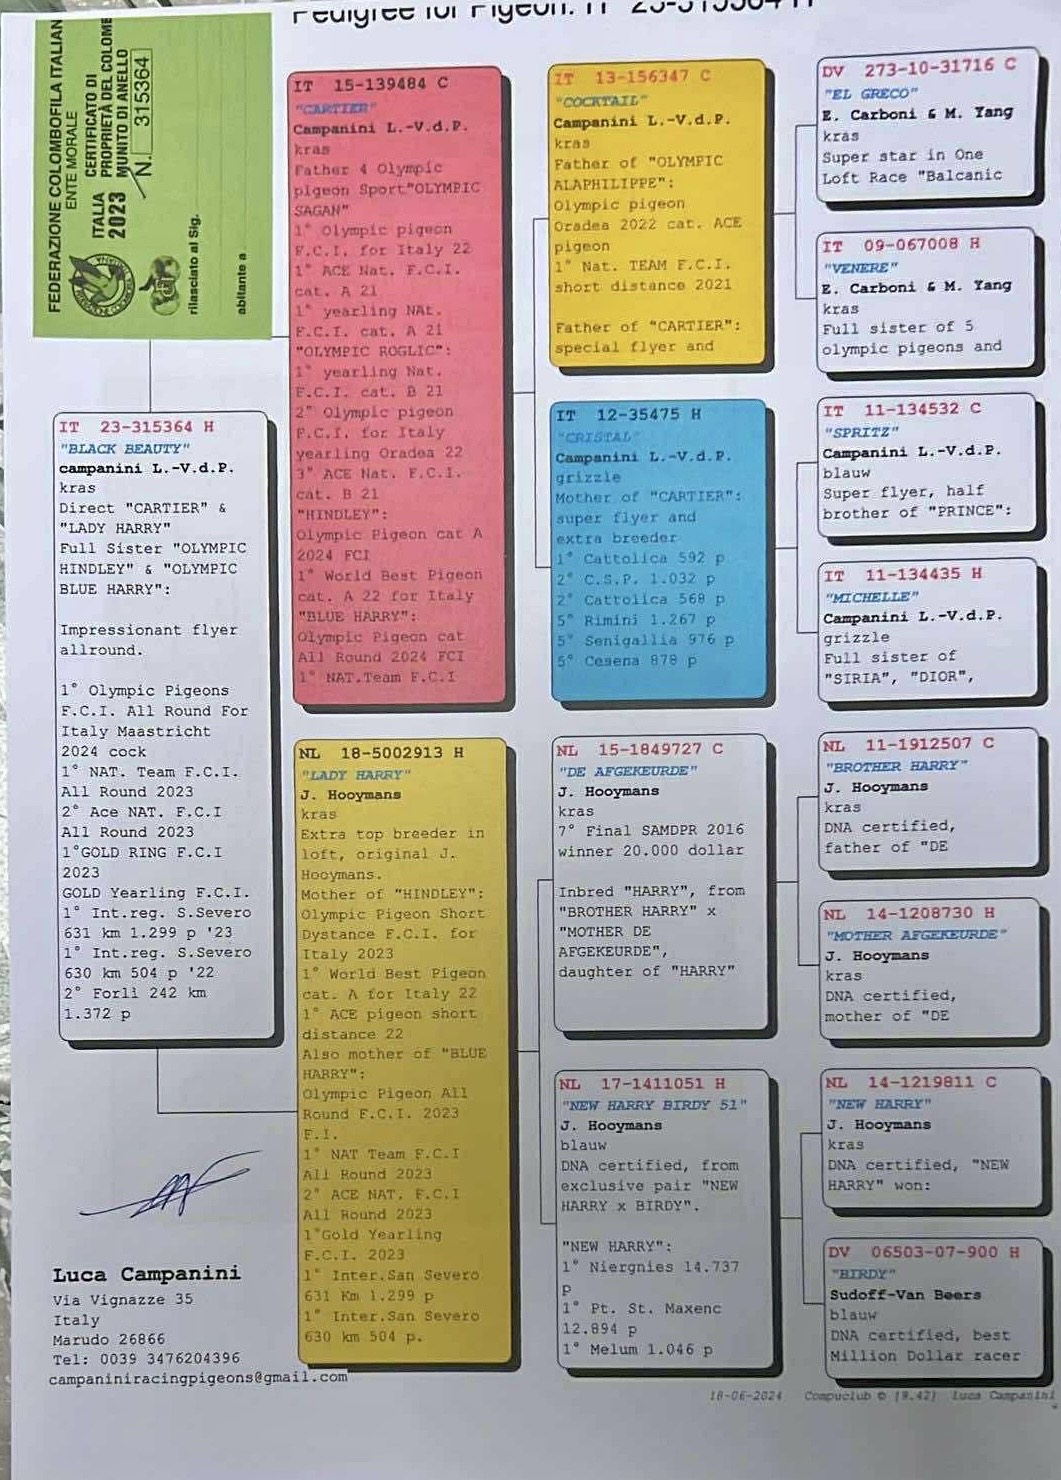 Pedigree for Pigeon: IT 23-315364 H
FEDERAZIONE COLOMBOFILA ITALIAN
ENTE MORALE
ITALIA
2023
CERTIFICATO DI
PROPRIETÀ DEL COLOMB
MUNITO DI ANELLO
N. 315364
rilasciato al Sig.
abitante a
IT 23-315364 H
"BLACK BEAUTY"
campanini L.-V.d.P.
kras
Direct "CARTIER" &
"LADY HARRY"
Full Sister "OLYMPIC
HINDLEY" & "OLYMPIC
BLUE HARRY":
Impressionant flyer
allround.
1° Olympic Pigeons
F.C.I. All Round For
Italy Maastricht
2024 cock
1° NAT. Team F.C.I.
All Round 2023
2° Ace NAT. F.C.I
All Round 2023
1°GOLD RING F.C.I
2023
GOLD Yearling F.C.I.
1° Int.reg. S.Severo
631 km 1.299 p '23
1° Int.reg. S.Severo
630 km 504 p '22
2° Forlì 242 km
1.372 p
IT 15-139484 C
"CARTIER"
Campanini L.-V.d.P.
kras
Father 4 Olympic
pigeon Sport"OLYMPIC
SAGAN"
1° Olympic pigeon
F.C.I. for Italy 22
1° ACE Nat. F.C.I.
cat. A 21
1° yearling NAt.
F.C.I. cat. A 21
"OLYMPIC ROGLIC":
1° yearling Nat.
F.C.I. cat. B 21
2° Olympic pigeon
F.C.I. for Italy
yearling Oradea 22
3° ACE Nat. F.C.I.
cat. B 21
"HINDLEY":
Olympic Pigeon cat A
2024 FCI
1° World Best Pigeon
cat. A 22 for Italy
"BLUE HARRY":
Olympic Pigeon cat
All Round 2024 FCI
1° NAT.Team F.C.I
NL 18-5002913 H
"LADY HARRY"
J. Hooymans
kras
Extra top breeder in
loft, original J.
Hooymans.
Mother of "HINDLEY":
Olympic Pigeon Short
Dystance F.C.I. for
Italy 2023
1° World Best Pigeon
cat. A for Italy 22
1° ACE pigeon short
distance 22
Also mother of "BLUE
HARRY":
Olympic Pigeon All
Round F.C.I. 2023
F.I.
1° NAT Team F.C.I
All Round 2023
2° ACE NAT. F.C.I
All Round 2023
1°Gold Yearling
F.C.I. 2023
1° Inter.San Severo
631 Km 1.299 p
1° Inter.San Severo
630 km 504 p.
IT 13-156347 C
"COCKTAIL"
Campanini L.-V.d.P.
kras
Father of "OLYMPIC
ALAPHILIPPE":
Olympic pigeon
Oradea 2022 cat. ACE
pigeon
1° Nat. TEAM F.C.I.
short distance 2021
Father of "CARTIER":
special flyer and
IT 12-35475 H
"CRISTAL"
Campanini L.-V.d.P.
grizzle
Mother of "CARTIER":
super flyer and
extra breeder
1° Cattolica 592 p
2° C.S.P. 1.032 p
2° Cattolica 568 p
5° Rimini 1.267 p
5° Senigallia 976 p
5° Cesena 878 p
NL 15-1849727 C
"DE AFGEKEURDE"
J. Hooymans
kras
7° Final SAMDPR 2016
winner 20.000 dollar
Inbred "HARRY", from
"BROTHER HARRY" x
"MOTHER DE
AFGEKEURDE",
daughter of "HARRY"
NL 17-1411051 H
"NEW HARRY BIRDY 51"
J. Hooymans
blauw
DNA certified, from
exclusive pair "NEW
HARRY x BIRDY".
"NEW HARRY":
1° Niergnies 14.737
p
1° Pt. St. Maxenc
12.894 p
1° Melum 1.046 p
DV 273-10-31716 C
"EL GRECO"
E. Carboni & M. Yang
kras
Super star in One
Loft Race "Balcanic
IT 09-067008 H
"VENERE"
E. Carboni & M. Yang
kras
Full sister of 5
olympic pigeons and
IT 11-134532 C
"SPRITZ"
Campanini L.-V.d.P.
blauw
Super flyer, half
brother of "PRINCE":
IT 11-134435 H
"MICHELLE"
Campanini L.-V.d.P.
grizzle
Full sister of
"SIRIA", "DIOR",
NL 11-1912507 C
"BROTHER HARRY"
J. Hooymans
kras
DNA certified,
father of "DE
NL 14-1208730 H
"MOTHER AFGEKEURDE"
J. Hooymans
kras
DNA certified,
mother of "DE
NL 14-1219811 C
"NEW HARRY"
J. Hooymans
kras
DNA certified, "NEW
HARRY" won:
DV 06503-07-900 H
"BIRDY"
Sudoff-Van Beers
blauw
DNA certified, best
Million Dollar racer
Luca Campanini
Via Vignazze 35
Italy
Marudo 26866
Tel: 0039 3476204396
campaniniracingpigeons@gmail.com
18-06-2024 Compuclub © [9.42] Luca Campanini